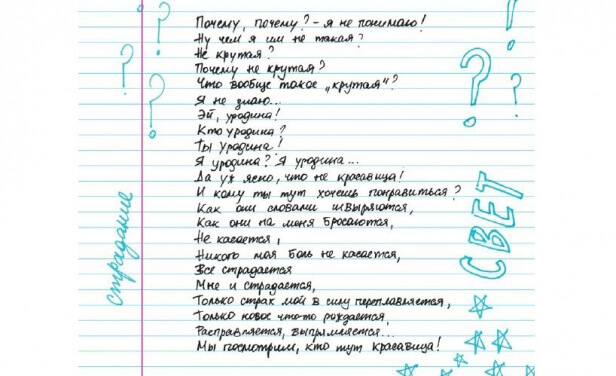 Почему, почему? - я не понимаю!
Ну чем я им не такая?
Не крутая?
Почему не крутая?
Что вообще такое „крутая"?
Я не знаю...
Эй, уродина!
Кто уродина?
Ты уродина!
Я уродина? Я уродина...
Да уж ясно, что не красавица!
И кому ты тут хочешь понравиться?
Как они словами швыряются,
Как они на меня бросаются,
Не касается,
Никого моя боль не касается,
Все страдается
Мне и страдается,
Только страх мой в силу переплавляется,
Только новое что-то рождается,
Расправляется, выпрямляется...
Мы посмотрим, кто тут красавица!
страдание
СВЕТ